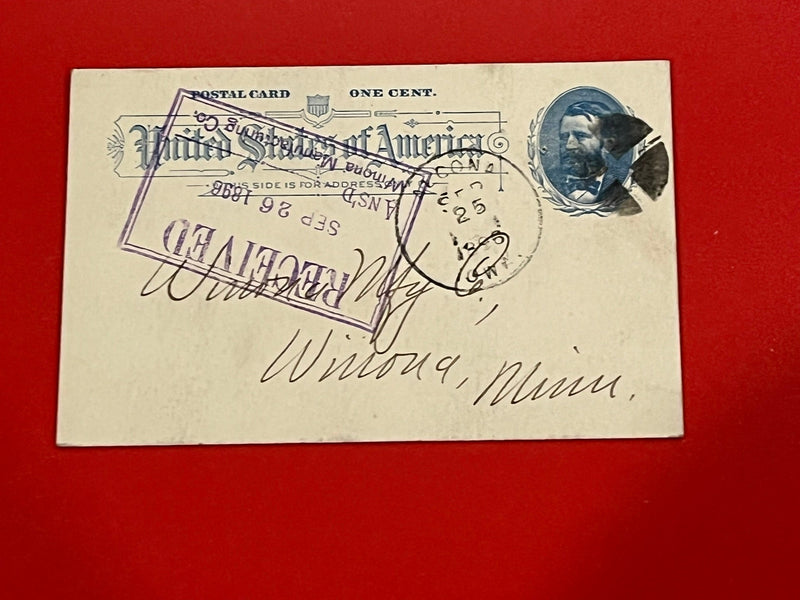 POSTAL CARD ONE CENT.
United States of America
THIS SIDE IS FOR ADDRESS ONLY
RECEIVED
SEP 26 1898
ANS'D
Winona Manufacturing Co.
25
IOWA
Winona Mfg Co,
Winona, Minn.